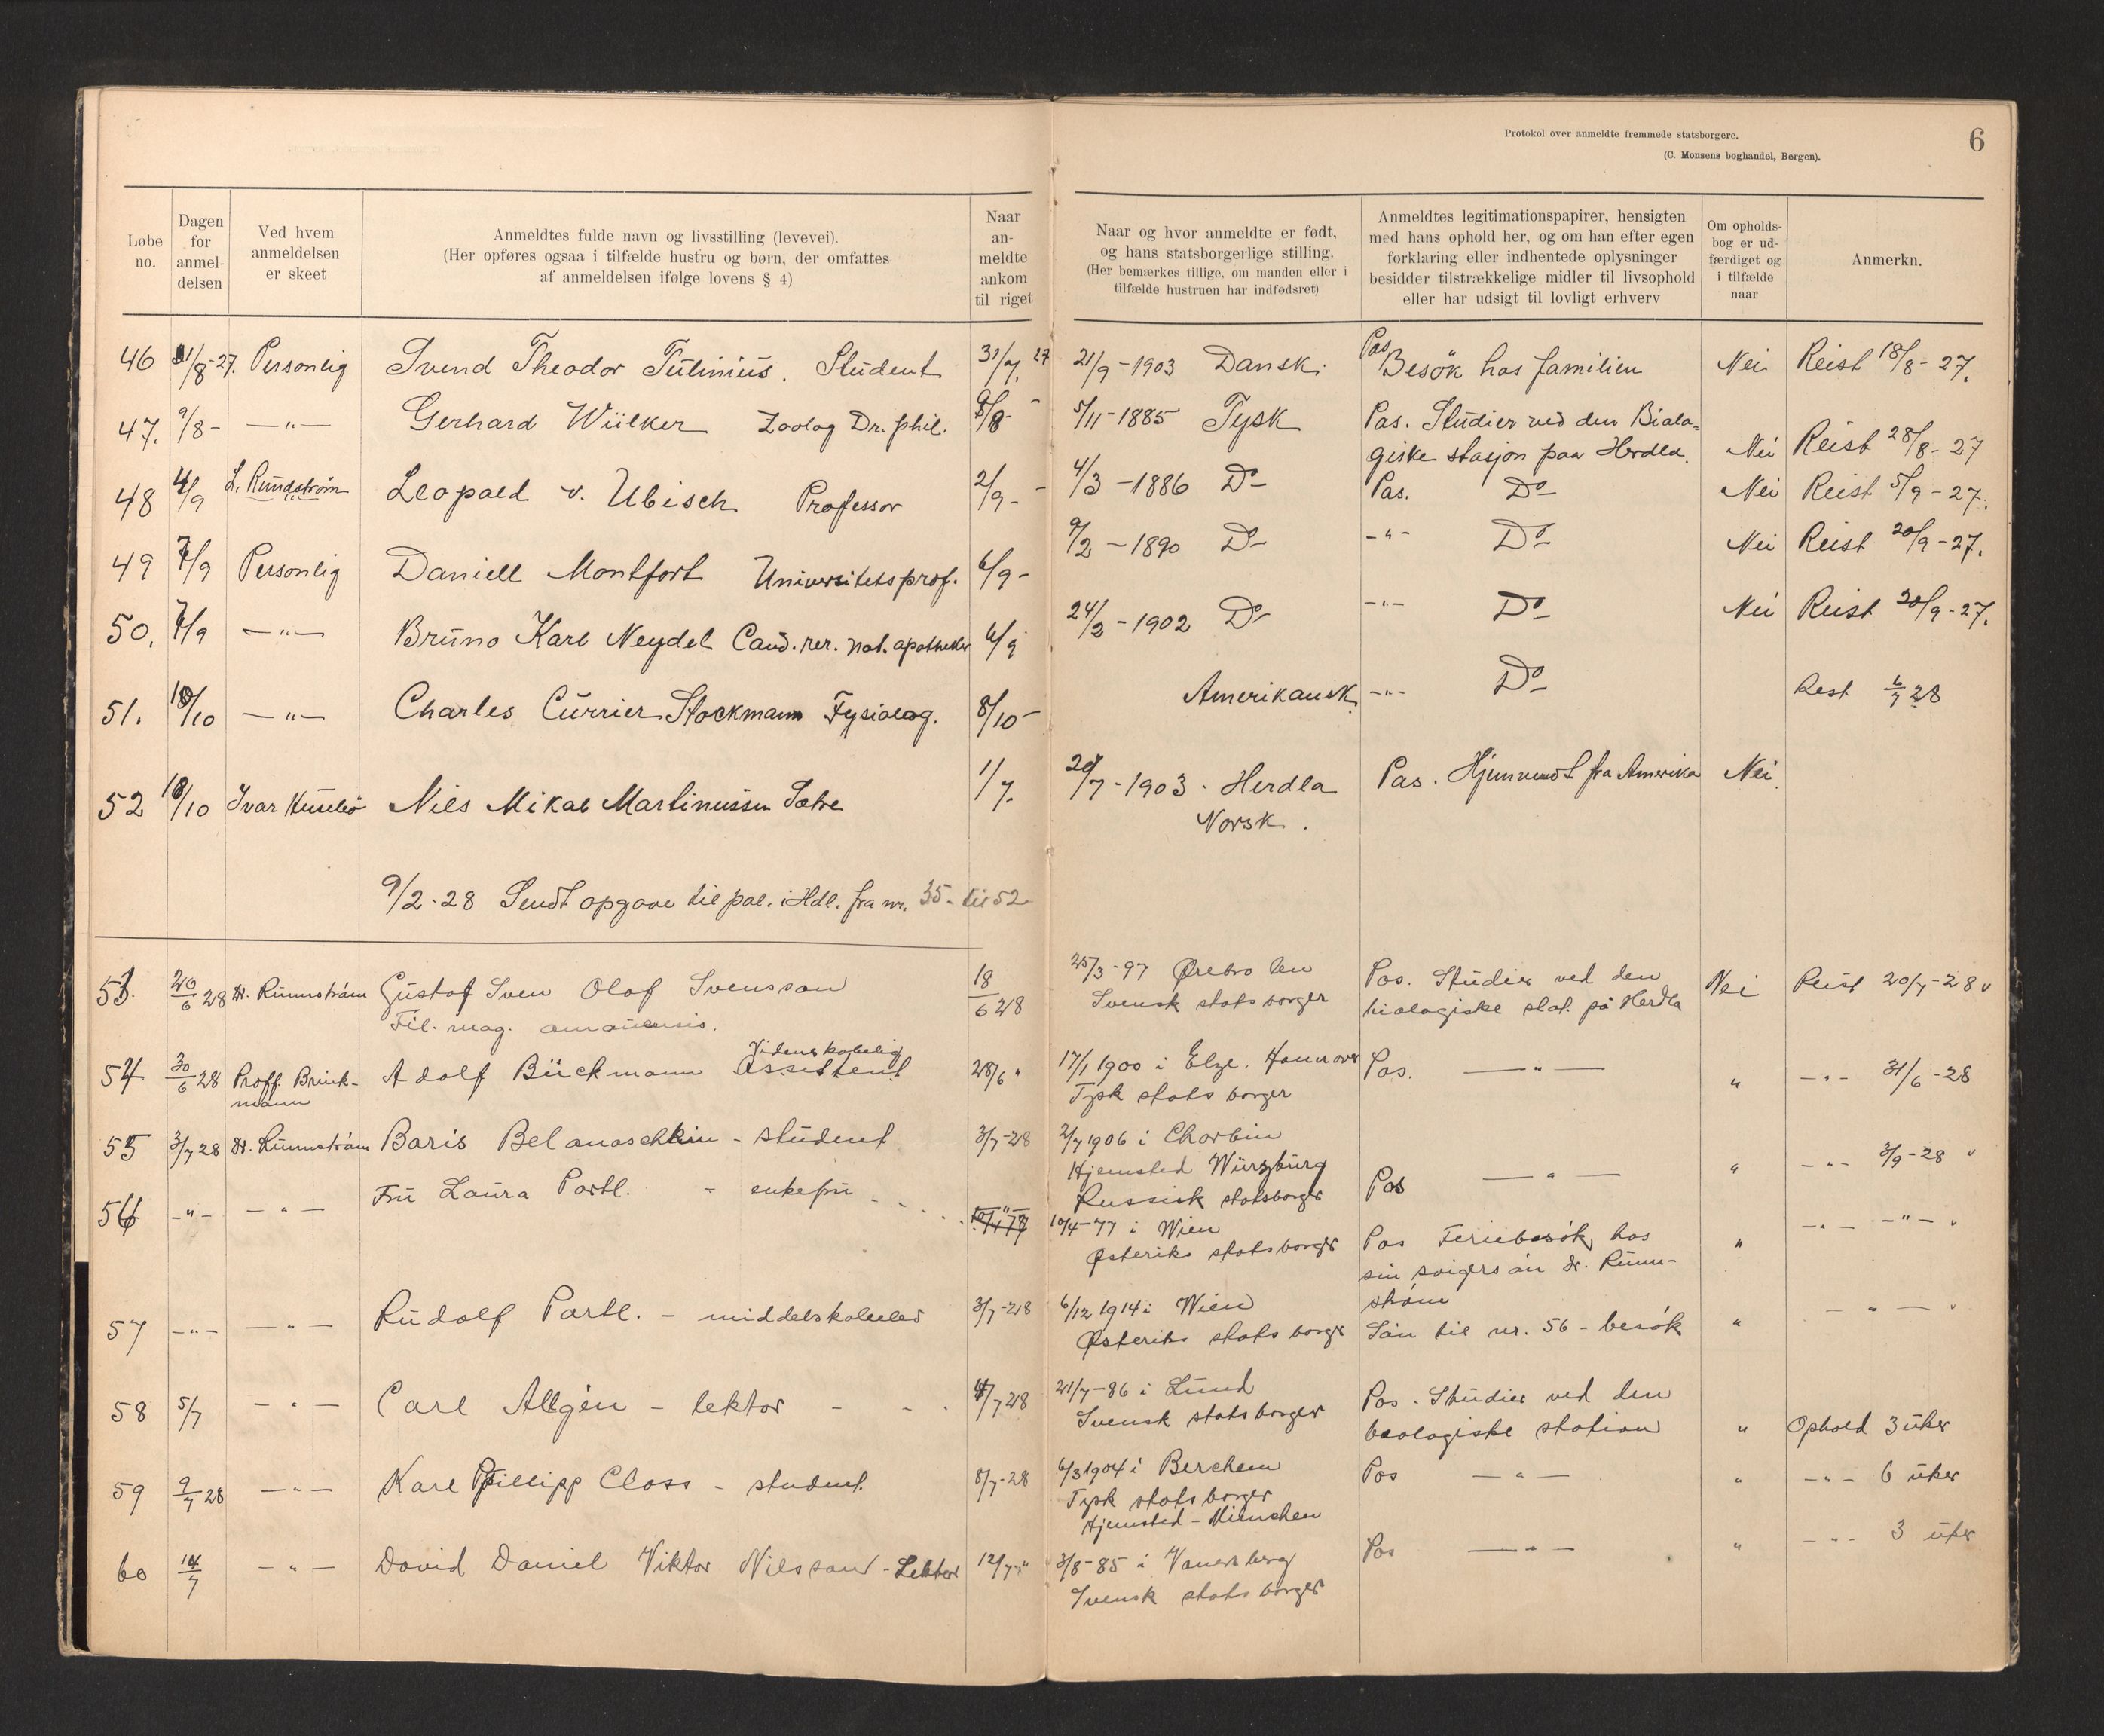 Protokol over anmeldte fremmede statsborgere.
(C. Monsens boghandel, Bergen).
6
Løbe no.
Dagen for anmel-delsen
Ved hvem anmeldelsen er skeet
Anmeldtes fulde navn og livsstilling (levevei).
(Her opføres ogsaa i tilfælde hustru og børn, der omfattes
af anmeldelsen ifølge lovens § 4)
Naar an-meldte ankom til riget
Naar og hvor anmeldte er født,
og hans statsborgerlige stilling.
(Her bemærkes tillige, om manden eller i
tilfælde hustruen har indfødsret)
Anmeldtes legitimationspapirer, hensigten
med hans ophold her, og om han efter egen
forklaring eller indhentede oplysninger
besidder tilstrækkelige midler til livsophold
eller har udsigt til lovligt erhverv
Om opholds-bog er ud-færdiget og i tilfælde naar
Anmerkn.
46 1/8-27. Personlig Svend Theodor Tulinius. Student 31/7. 27 21/9-1903 Dansk. Pas Besök hos familien Nei Reist 18/8-27.
47. 9/8- —"— Gerhard Wülker Zoolog Dr. phil. 5/11-1885 Tysk Pas. Studier ved den Biolo-
giske stasjon paa Herdla. Nei Reist 28/8-27
48 4/9 L. Rundström Leopold v. Ubisch Professor 2/9- - 4/3-1886 Do- Pas. Do- Nei Reist 5/9-27.
49 7/9 Personlig Daniell Montfort Universitetsprof. 6/9- 9/2-1890 Do- -"- Do- Nei Reist 20/9-27.
50. 7/9 —"— Bruno Karl Neydel Cand. rer. nat. apotheker 6/9 24/2-1902 Do- -"- Do- Nei Reist 20/9-27.
51. 10/10 —"— Charles Currier Stockmann Fysiolog. 8/10- Amerikansk. -"- Do- Rest 6/7 28
52 18/10 Ivar Husebö Nils Mikal Martinussen Sætre 1/7. 20/7-1903. Herdla Pas. Hjemvendt fra Amerika Nei.
Norsk.
9/2-28 Sendt opgave til pol. i Hdl. fra nr. 35- til 52
53. 20/6 28 Dr. Runnström Gustaf Sven Olof Svensson 18/6 28 25/3-97 Örebro len Pas. Studier ved den Nei Reist 20/7-28
Fil. mag. amanuensis. Svensk statsborger biologiske stat. på Herdla
54 30/6 28 Proff. Brink-mann Adolf Bückmann Videnskabelig Assistent 28/6 " 17/1 1900 i Elze. Hannover Pas. —"— " -"- 31/6-28
Tysk statsborger
55 3/7 28 Dr. Runnström Boris Belanoschkin - student 3/7-28 2/7 1906 i Chorbin
Hjemsted Würzburg
Russisk statsborger Pas —"— " -"- 3/9-28
56 -"- -"- Fru Laura Partl. - enkefru - 10/4-77 i Wien
Østeriks statsborger Pas Feriebesök hos
sin svigersön dr. Runn-
ström " -"- -"-
57 -"- —"— Rudolf Partl. - middelskoleelev 3/7-28 6/12 1914 i Wien
Østeriks statsborger Sön til nr. 56 - besök " —"—
58 5/7 -"- Carl Allgén - lektor - 4/7 28 21/7-86 i Lund Pas. Studier ved den
Svensk statsborger beologiske station " Ophold 3 uker
59 9/7 28 —"— Karl Phillipp Closs - student 8/7-28 6/3 1904 i Berchem Pas —"— " -"- 6 uker
Tysk statsborger
Hjemsted - München
60 14/7 -"- David Daniel Viktor Nilsson - Lektor 12/7 " 3/8-85 i Vanersborg Pas —"— " -"- 3 uker
Svensk statsborger